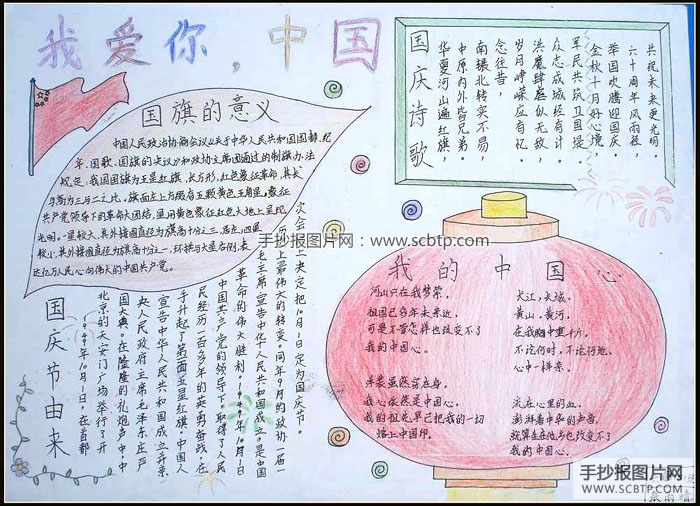 我爱你，中国
国旗的意义
中国人民政治协商会议《关于中华人民共和国国都、纪
年、国歌、国旗的决议》和政协主席团通过的制旗办法
规定，我国国旗为五星红旗，长方形，红色象征革命，其长
与高为三与二之比，旗面左上方缀有五颗黄色五角星，象征
共产党领导下的革命大团结，星用黄色象征红色大地上呈现
光明。一星较大，其外接圆直径为旗高十分之三，居左，四星
较小，其外接圆直径为旗高十分之一，环拱与大星右侧，表
达亿万人民心向伟大的中国共产党。
国庆诗歌
共祝未来更光明。
六十周年风雨程，
举国欢腾迎国庆
金秋十月好心境
军民共筑卫国堤。
众志成城经有计
洪魔肆虐似无敌，
岁月峥嵘应有忆
念往昔，
南辕北转实不易，
中原内外皆兄弟，
华夏河山遍红旗，
国庆节由来
1949年10月1日，在首都
北京的天安门广场举行了开
国大典。在隆隆的礼炮声中，中
央人民政府主席毛泽东庄严
宣告中华人民共和国成立并亲
手升起了第一面五星红旗。中国人
民经历一百多年的英勇奋战，在
中国共产党的领导下，取得了人民
革命的伟大胜利。1949年10月1日
毛主席宣告中华人民共和国成立，是中国
历史上最伟大的转变。同年9月的政协一届一
次会议上决定把10月1日定为国庆节。
我的中国心
河山只在我梦萦，
祖国已多年未亲近，
可是不管怎样也改变不了
我的中国心。
洋装虽然穿在身，
我心依然是中国心，
我的祖先早已把我的一切
烙上中国印。
长江，长城，
黄山，黄河，
在我胸中重千斤，
不论何时，不论何地，
心中一样亲。
流在心里的血，
澎湃着中华的声音，
就算生在他乡也改变不了
我的中国心。
手抄报图片网：www.scbtp.com
手抄报图片网
WWW.SCBTP.COM